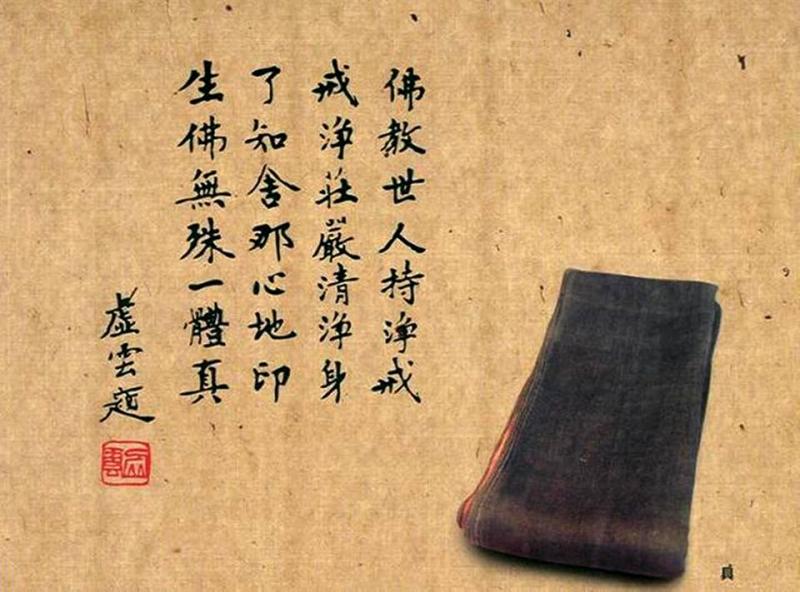 佛教世人持淨戒
戒淨莊嚴清淨身
了知舍那心地印
生佛無殊一體真
虛雲題
虛雲
真